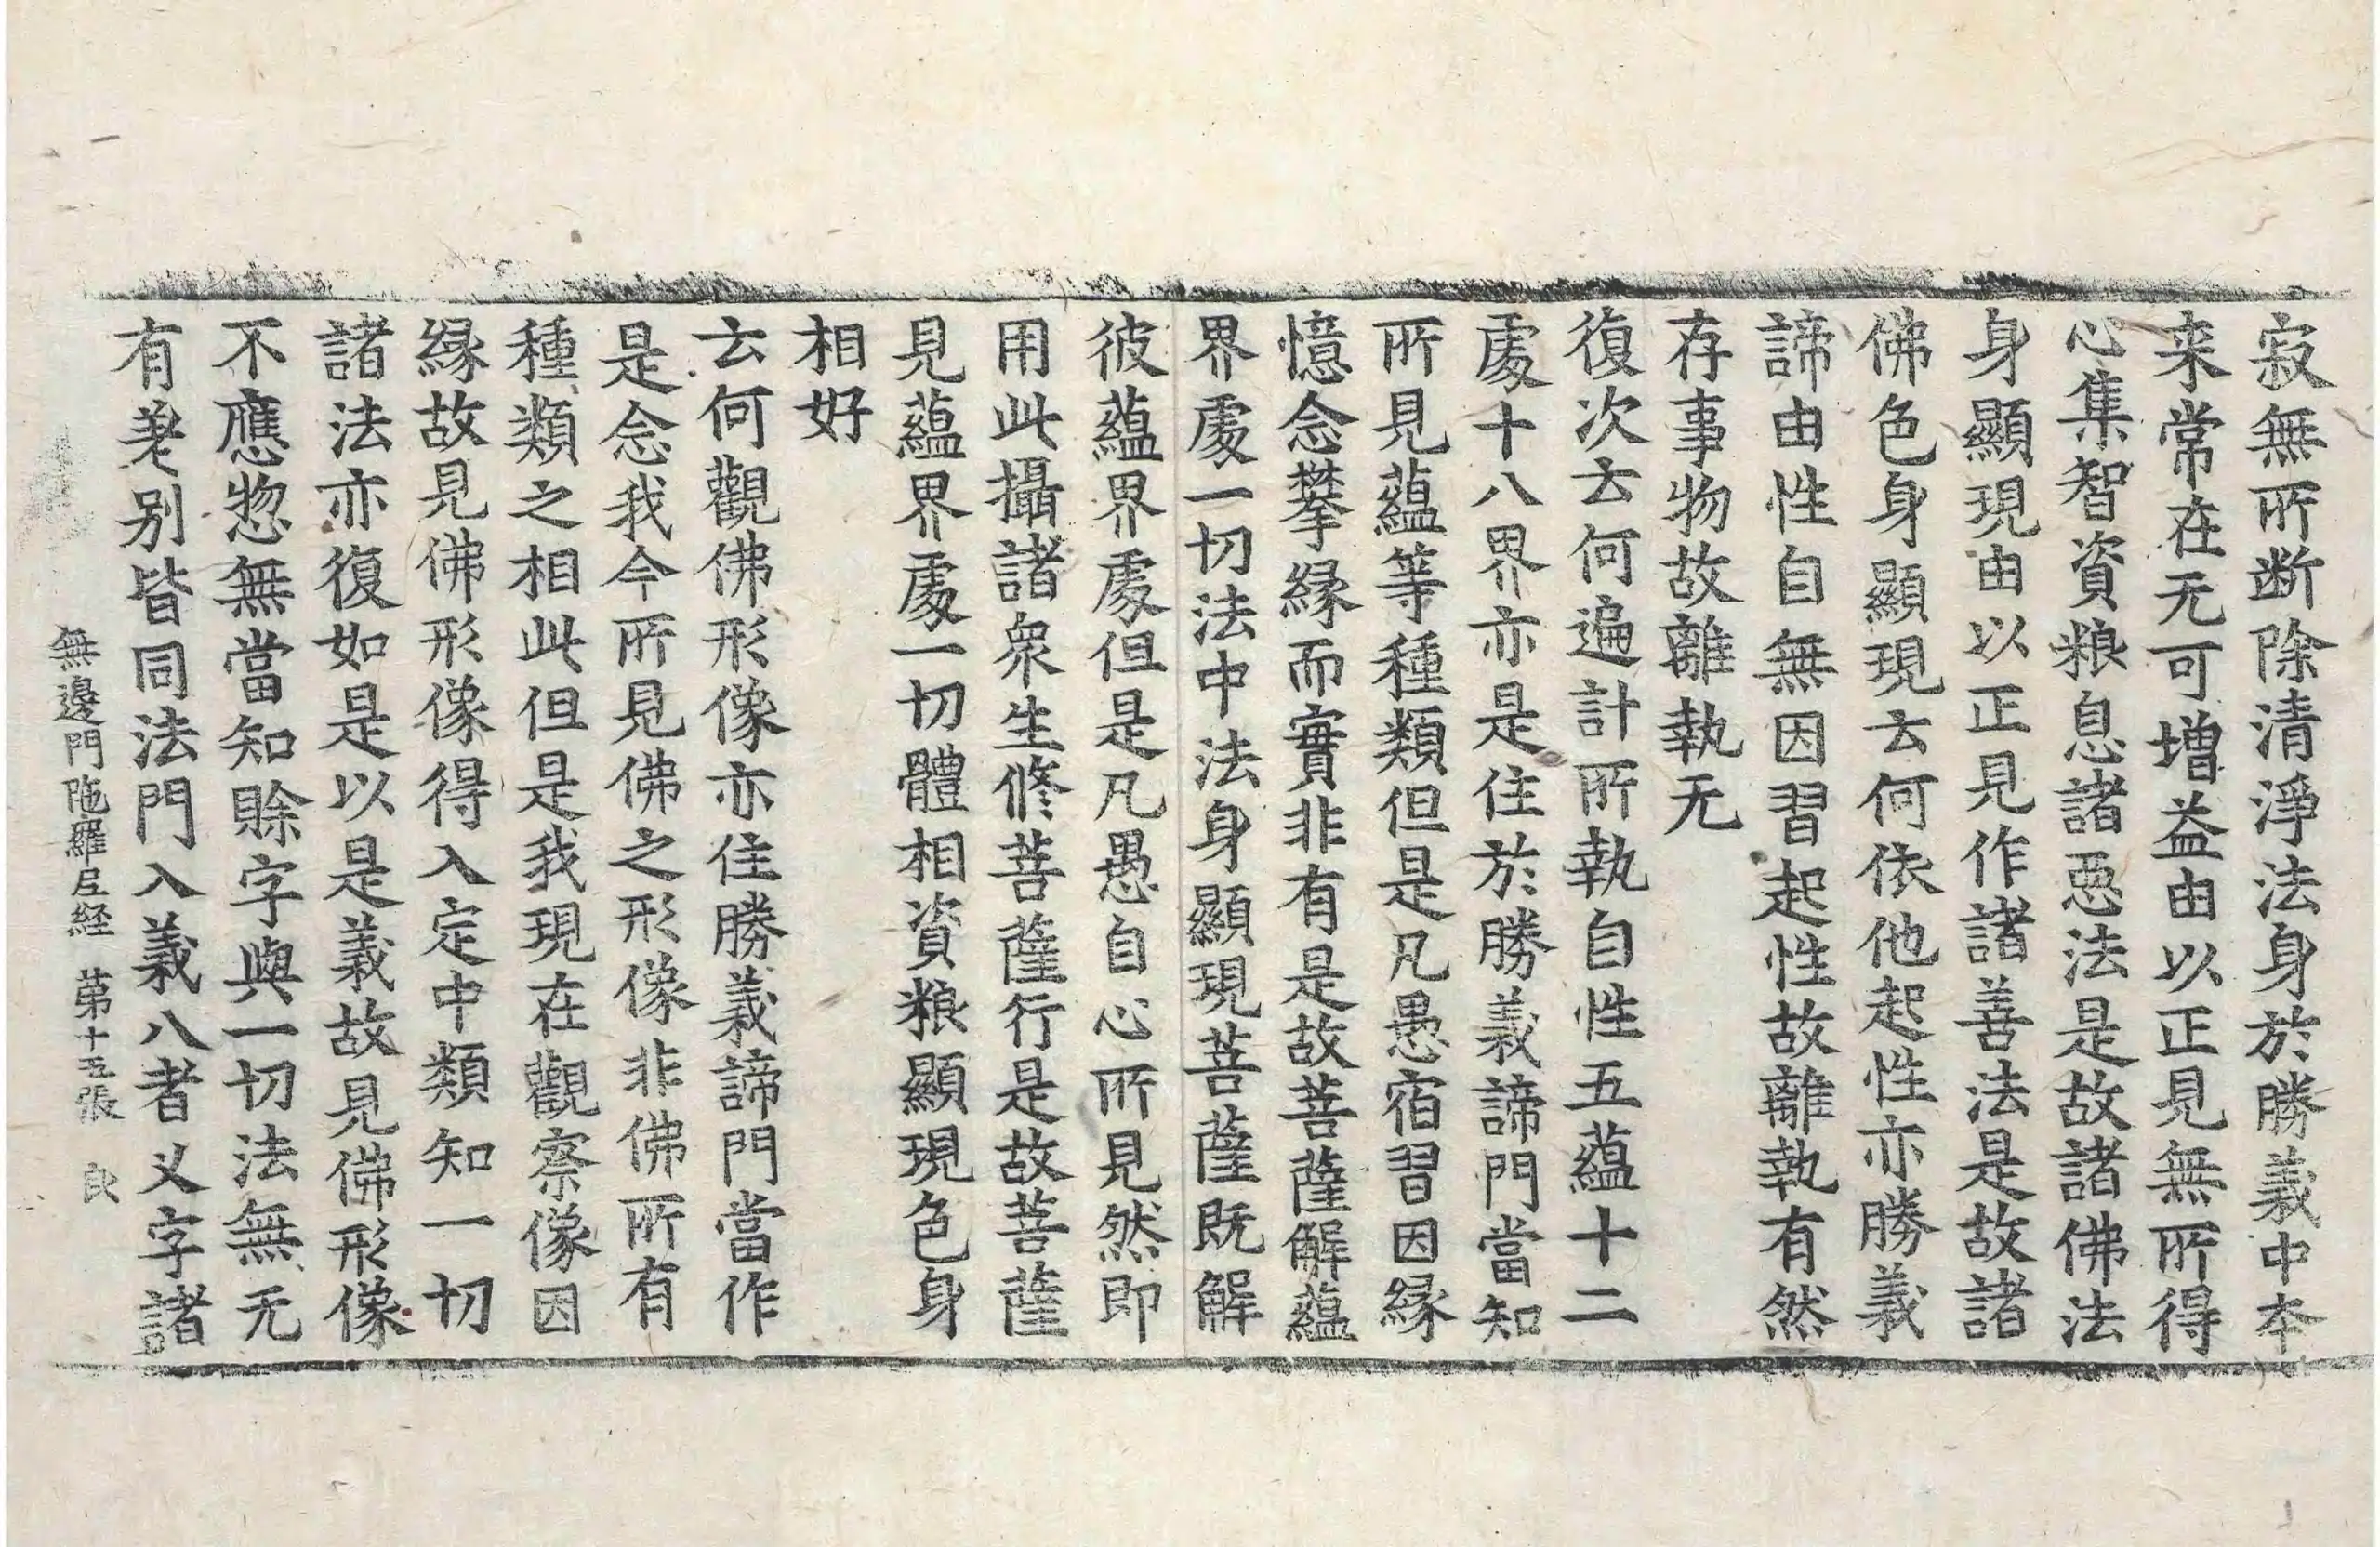 寂無所断除清淨法身於勝義中夲
来常在无可增益由以正見無所得
心集智資粮息諸惡法是故諸佛法
身顯現由以正見作諸善法是故諸
佛色身顯現云何依他起性亦勝義
諦由性自無因習起性故離執有然
存事物故離執无
復次云何遍計所執自性五蘊十二
處十八界亦是住於勝義諦門當知
所見蘊等種類但是凡愚宿習因縁
憶念攀縁而實非有是故菩薩解蘊
界處一切法中法身顯現菩薩既解
彼蘊界處但是凡愚自心所見然即
用此攝諸衆生修菩薩行是故菩薩
見蘊界處一切體相資粮顯現色身
相好
云何觀佛形像亦住勝義諦門當作
是念我今所見佛之形像非佛所有
種類之相此但是我現在觀察像因
縁故見佛形像得入定中類知一切
諸法亦復如是以是義故見佛形像
不應惣無當知賖字與一切法無无
有差别皆同法門入義八者乂字諸
無邊門陁羅尼経 苐十五張 良